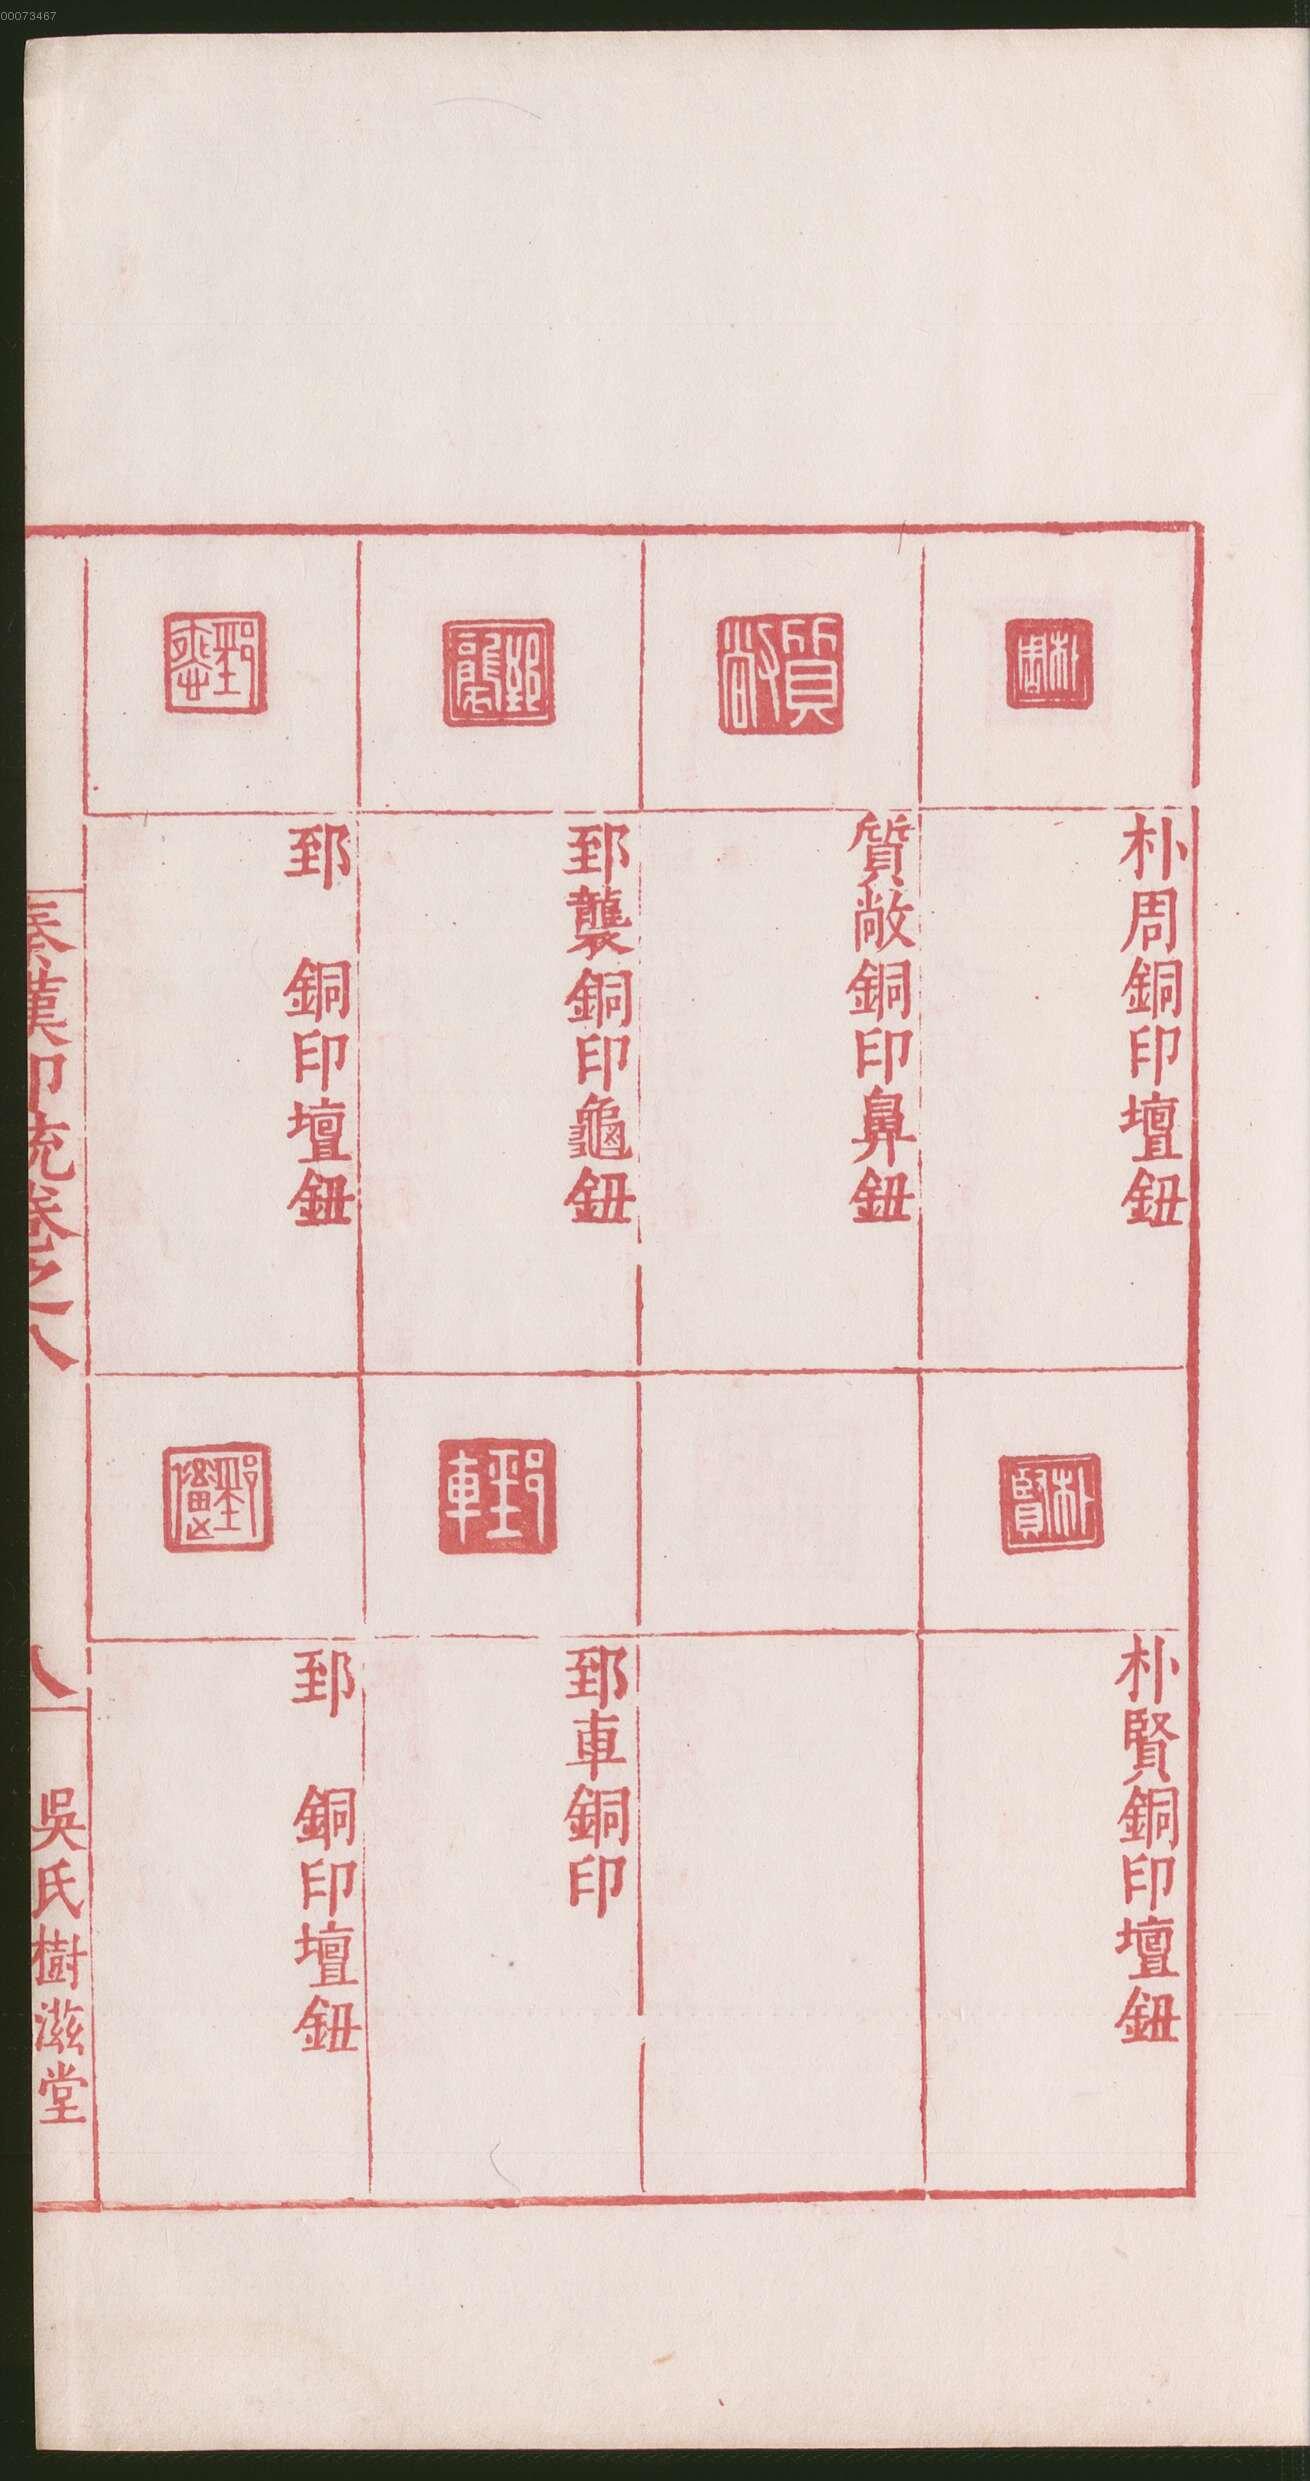 00073467
朴周
朴周銅印壇鈕
朴賢
朴賢銅印壇鈕
質敞
質敞銅印鼻鈕
郅襲
郅襲銅印龜鈕
郅車
郅車銅印
郅
郅　銅印壇鈕
郅
郅　銅印壇鈕
秦漢印統卷之八
八
吳氏樹滋堂